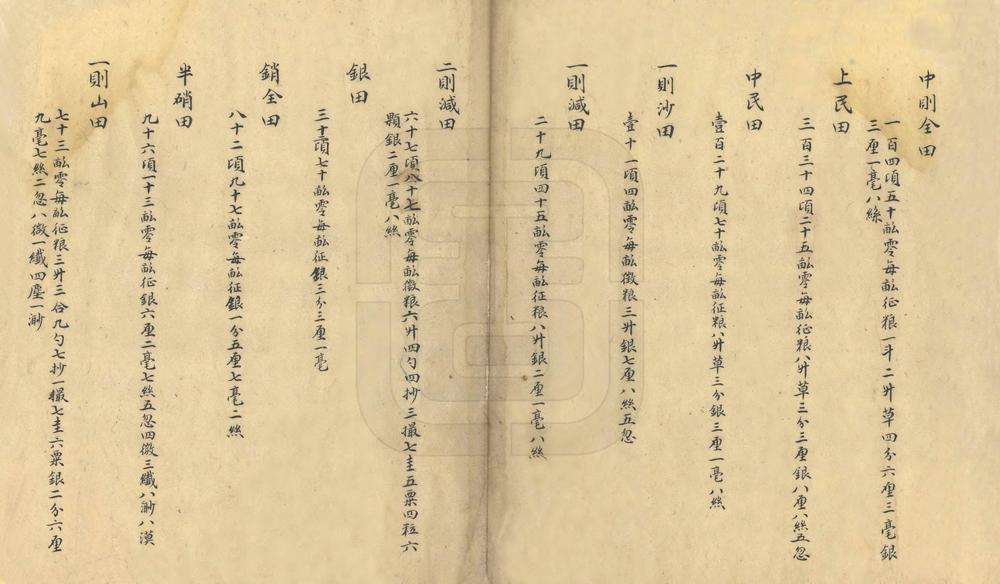 中則全田
一百四頃五十畝零每畝征粮一斗二升草四分六厘三毫銀
三厘一毫八絲
上民田
三百三十四頃二十五畝零每畝征粮八升草三分三厘銀八厘八絲五忽
中民田
壹百二十九頃七十畝零每畝征粮八升草三分銀三厘一毫八絲
一則沙田
壹十一頃四畝零每畝徵粮三升銀七厘八絲五忽
一則減田
二十九頃四十五畝零每畝征粮八升銀二厘一毫八絲
二則減田
六十七頃八十七畝零每畝徵粮六升四勺四抄三撮七圭五粟四粒六
顆銀二厘一毫八絲
銀田
三十頃七十畝零每畝征銀三分三厘一毫
銷全田
八十二頃九十七畝零每畝征銀一分五厘七毫二絲
半硝田
九十六頃一十三畝零每畝征銀六厘二毫七絲五忽四微三纖八渺八漠
一則山田
七十三畝零每畝征粮三升三合九勺七抄一撮七圭六粟銀二分六厘
九毫七絲二忽八微一纖四塵一渺